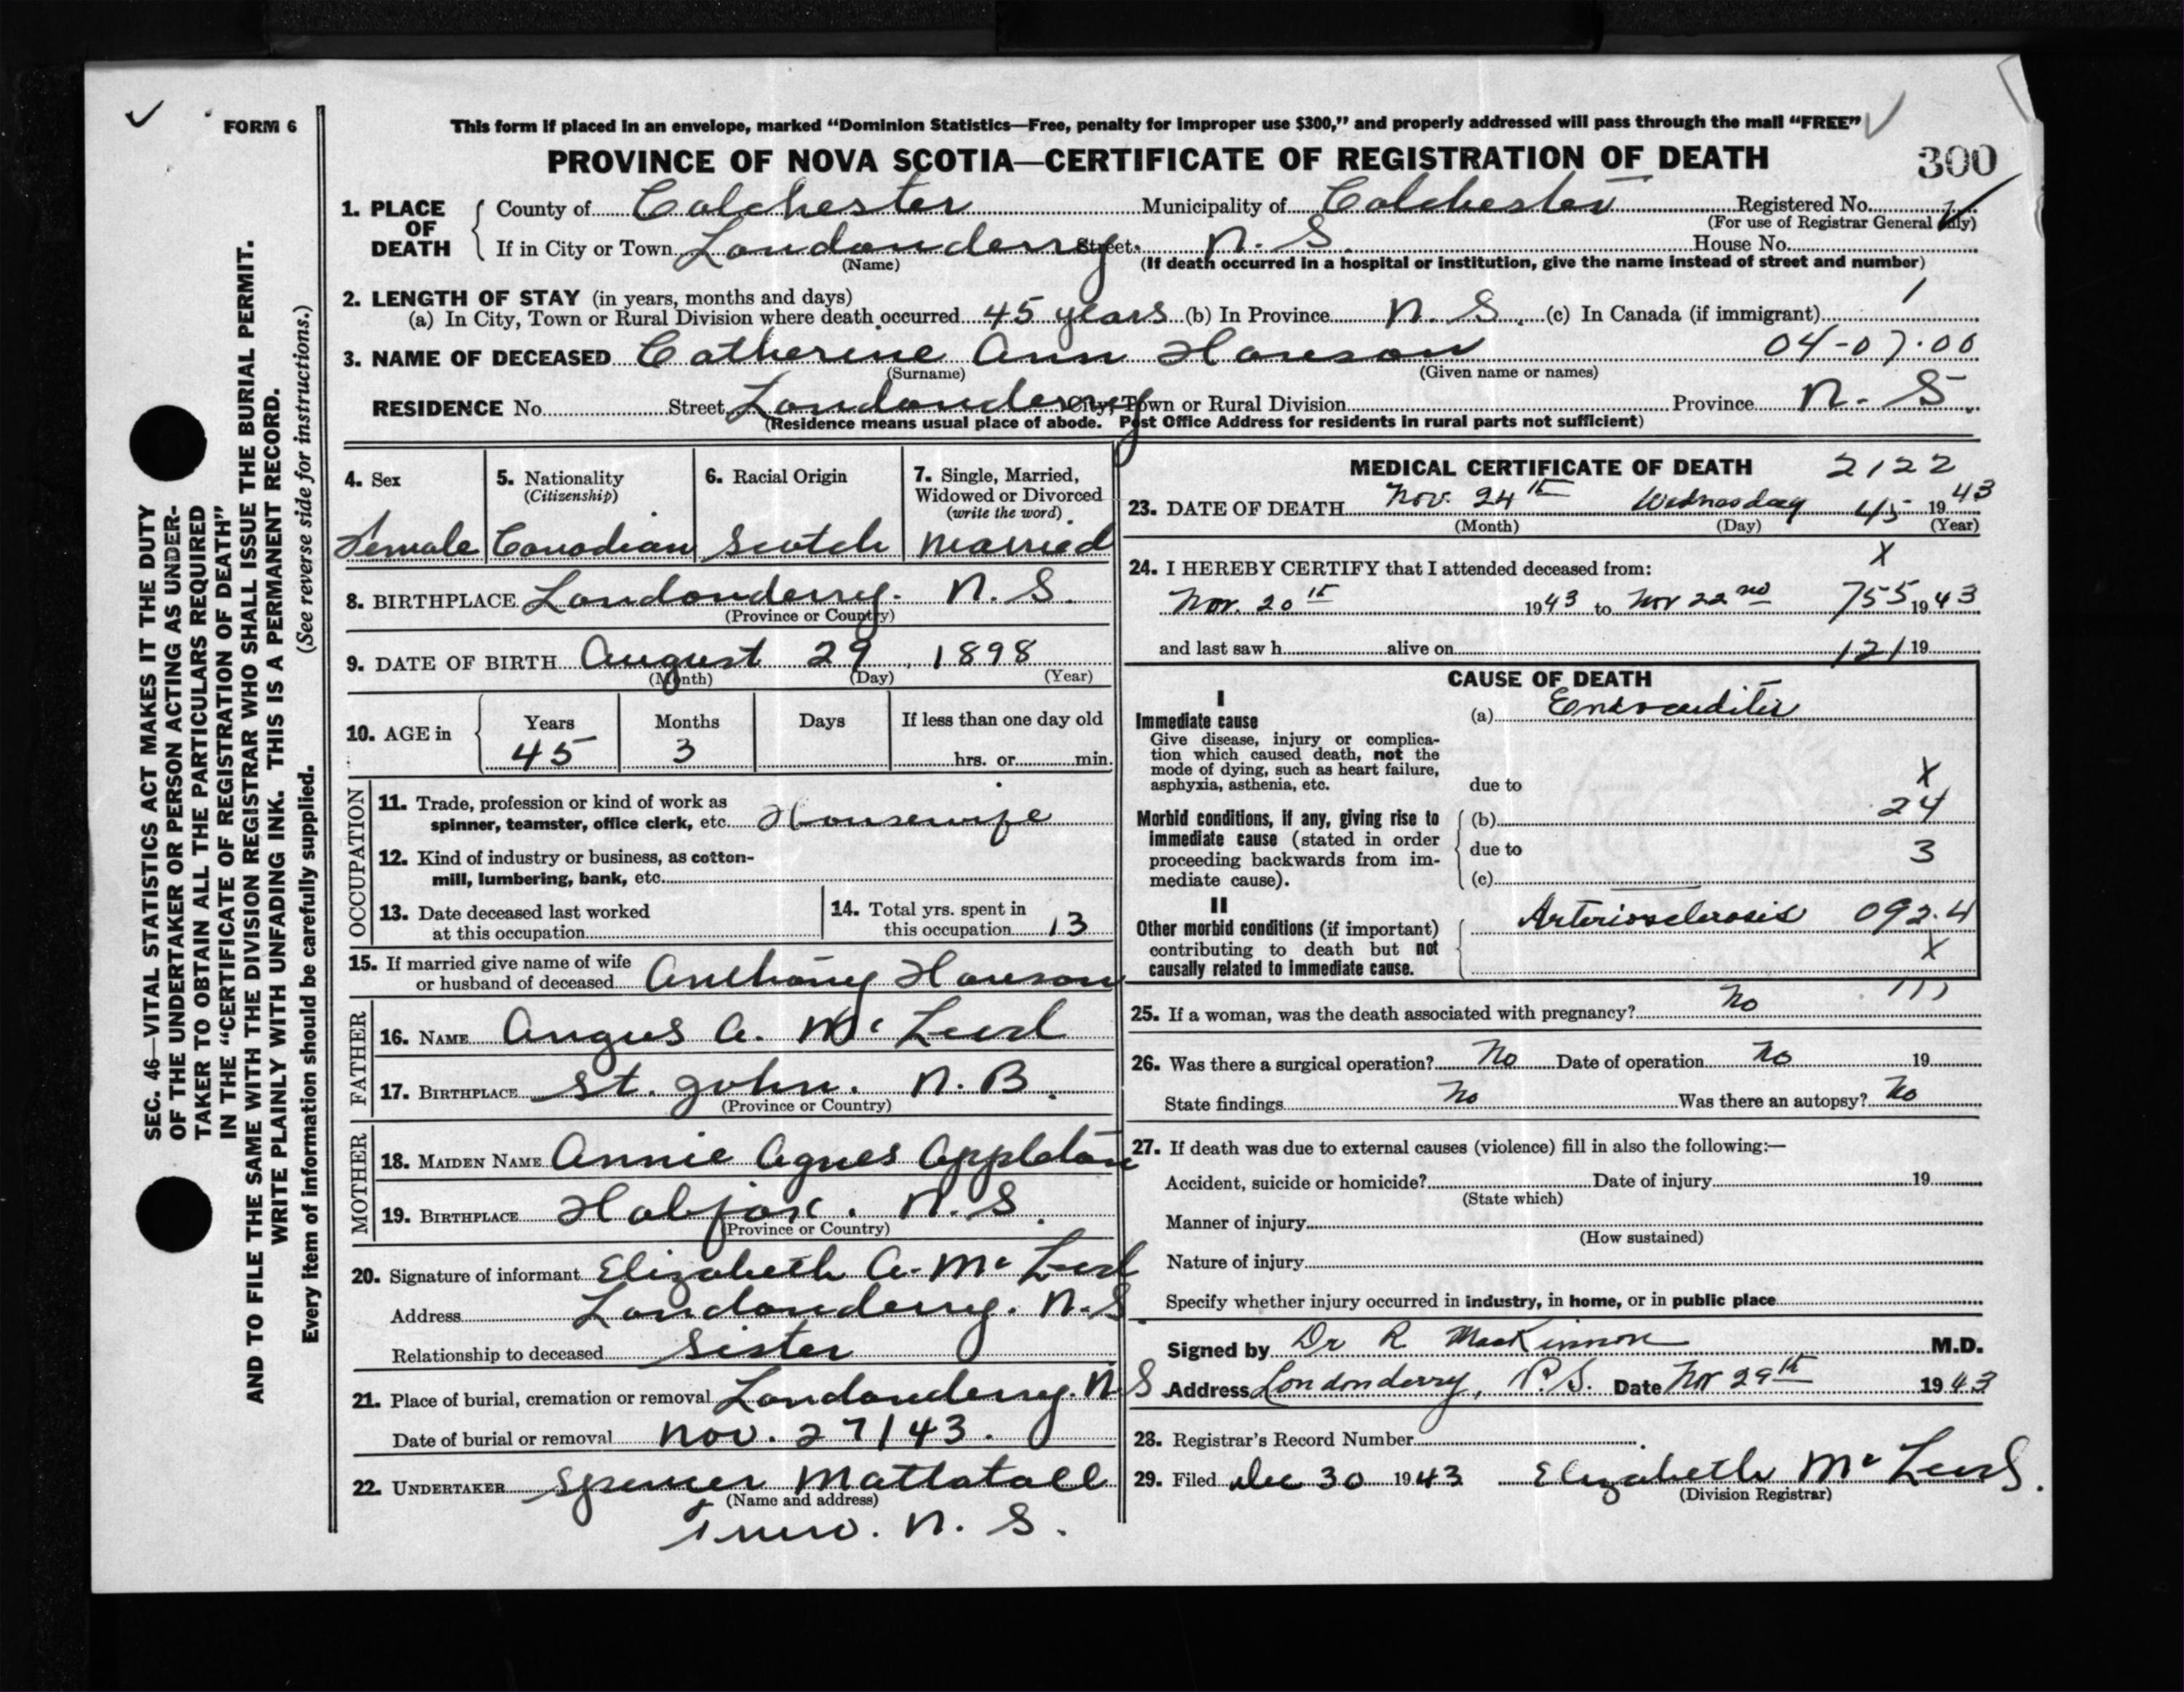 FORM 6
This form if placed in an envelope, marked “Dominion Statistics—Free, penalty for improper use $300,” and properly addressed will pass through the mail “FREE”
PROVINCE OF NOVA SCOTIA—CERTIFICATE OF REGISTRATION OF DEATH
300
1. PLACE OF DEATH
County of Colchester Municipality of Colchester Registered No.
(For use of Registrar General only)
If in City or Town Londonderry Street N. S. House No.
(Name) (If death occurred in a hospital or institution, give the name instead of street and number)
2. LENGTH OF STAY (in years, months and days)
(a) In City, Town or Rural Division where death occurred 45 years (b) In Province N. S. (c) In Canada (if immigrant)
3. NAME OF DECEASED Catherine Ann 04-07-00
(Surname) (Given name or names)
RESIDENCE No. Street Londonderry City, Town or Rural Division Province N. S.
(Residence means usual place of abode. Post Office Address for residents in rural parts not sufficient)
4. Sex
Female
5. Nationality
(Citizenship)
Canadian
6. Racial Origin
Scotch
7. Single, Married,
Widowed or Divorced
(write the word)
Married
8. BIRTHPLACE Londonderry. N. S.
(Province or Country)
9. DATE OF BIRTH August 29, 1898
(Month) (Day) (Year)
10. AGE in
Years Months Days If less than one day old
45 3 hrs. or min.
OCCUPATION
11. Trade, profession or kind of work as
spinner, teamster, office clerk, etc. Housewife
12. Kind of industry or business, as cotton-
mill, lumbering, bank, etc.
13. Date deceased last worked
at this occupation
14. Total yrs. spent in
this occupation 13
15. If married give name of wife
or husband of deceased Anthony
FATHER
16. NAME Angus A. Mc Leod
17. BIRTHPLACE St. John. N. B.
(Province or Country)
MOTHER
18. MAIDEN NAME Annie Agnes Appleton
19. BIRTHPLACE Halifax. N. S.
(Province or Country)
20. Signature of informant Elizabeth A. Mc Leod
Address Londonderry. N. S.
Relationship to deceased Sister
21. Place of burial, cremation or removal Londonderry. N S
Date of burial or removal Nov. 27/43.
22. UNDERTAKER Spencer Mattatall
(Name and address)
Truro. N. S.
MEDICAL CERTIFICATE OF DEATH 2122
23. DATE OF DEATH Nov. 24th Wednesday 45 1943
(Month) (Day) (Year)
X
24. I HEREBY CERTIFY that I attended deceased from:
Nov. 20th 1943 to Nov 22nd 755 1943
and last saw h alive on 121 19
CAUSE OF DEATH
I
Immediate cause
Give disease, injury or complica-
tion which caused death, not the
mode of dying, such as heart failure,
asphyxia, asthenia, etc.
(a) Endocarditis
due to X
Morbid conditions, if any, giving rise to
immediate cause (stated in order
proceeding backwards from im-
mediate cause).
(b) 24
due to 3
(c)
II
Other morbid conditions (if important)
contributing to death but not
causally related to immediate cause.
Arteriosclerosis 092.4
X
25. If a woman, was the death associated with pregnancy? No
26. Was there a surgical operation? No Date of operation No 19
State findings No Was there an autopsy? No
27. If death was due to external causes (violence) fill in also the following:—
Accident, suicide or homicide? Date of injury 19
(State which)
Manner of injury
(How sustained)
Nature of injury
Specify whether injury occurred in industry, in home, or in public place
Signed by Dr R MacKinnon M.D.
Address Londonderry, N.S. Date Nov 29th 1943
28. Registrar's Record Number
29. Filed Dec 30 1943 Elizabeth Mc Leod.
(Division Registrar)
SEC. 46—VITAL STATISTICS ACT MAKES IT THE DUTY
OF THE UNDERTAKER OR PERSON ACTING AS UNDER-
TAKER TO OBTAIN ALL THE PARTICULARS REQUIRED
IN THE “CERTIFICATE OF REGISTRATION OF DEATH”
AND TO FILE THE SAME WITH THE DIVISION REGISTRAR WHO SHALL ISSUE THE BURIAL PERMIT.
WRITE PLAINLY WITH UNFADING INK. THIS IS A PERMANENT RECORD.
Every item of information should be carefully supplied. (See reverse side for instructions.)